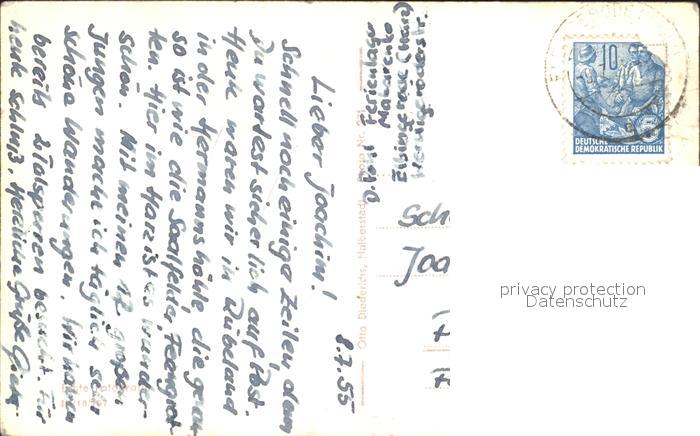 8.7.55
Lieber Joachim!
Schnell noch einige Zeilen, denn
Du wartest sicherlich auf Post.
Heute waren wir in Rübeland
in der Hermannshöhle, die genau
so ist wie die Saalfelder Feengrot-
ten. Hier im Harz ist es wunder-
schön. Mit meinen 12 großen
Jungen mache ich täglich sehr
schöne Wanderungen. Wir haben
bereits 2 Talsperren besucht. Für
heute Schluß. Herzliche Grüße
D. Paul Ferienlager
Makarenko
Elbingerode (Harz)
Wernigeröderstr.
Otto Diederichs, Halberstadt
Sch
Joa
10
5
DEUTSCHE
DEMOKRATISCHE REPUBLIK
privacy protection
Datenschutz